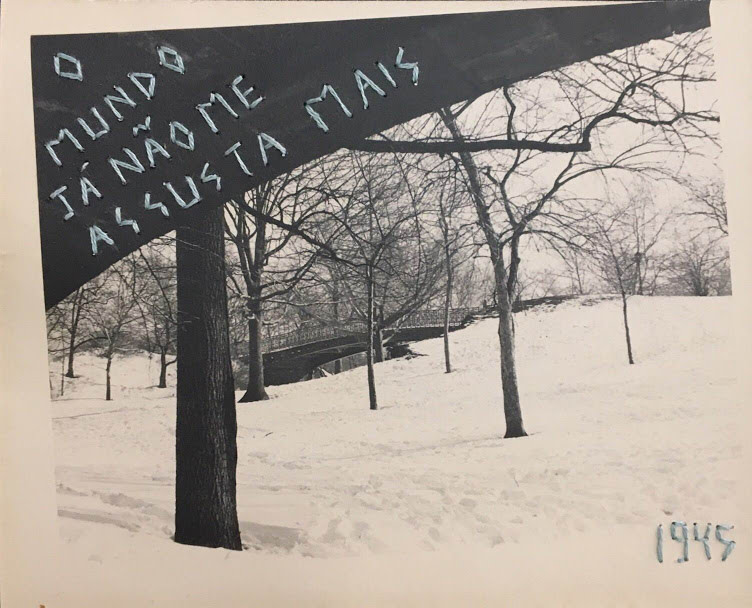 O
MUNDO
JÁ NÃO ME
ASSUSTA MAIS
1945